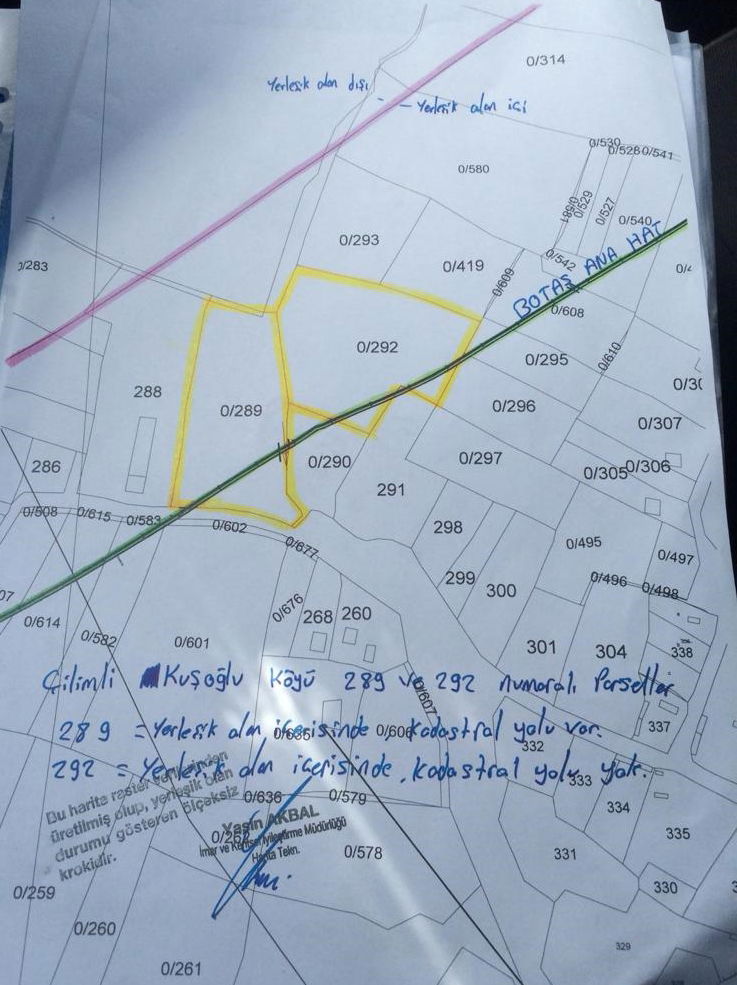 0/314
Yerleşik alan dışı
Yerleşik alan içi
0/530
0/528
0/541
0/580
0/581
0/529
0/527
0/540
0/293
0/283
0/419
0/609
0/542
BOTAŞ ANA HAT
0/608
0/292
0/295
0/610
288
0/289
0/296
0/307
0/290
0/297
286
291
0/305
0/306
0/508
0/615
0/583
0/602
298
0/677
0/495
0/497
299
300
0/496
0/498
07
0/614
0/676
268
260
0/582
0/601
301
304
338
Çilimli Kuşoğlu Köyü 289 ve 292 numaralı Parseller
0/607
289 = Yerleşik alan içerisinde Kadastral yolu var.
0/635
0/606
337
332
292 = Yerleşik alan içerisinde, Kadastral yolu yok.
333
Bu harita raster verisinden
üretilmiş olup, yerleşik alan
durumu gösteren ölçeksiz
krokidir.
0/636
0/579
334
Yasin AKBAL
İmar ve Kentsel İyileştirme Müdürlüğü
Harita Tekn.
335
0/578
331
0/259
330
0/260
329
0/261